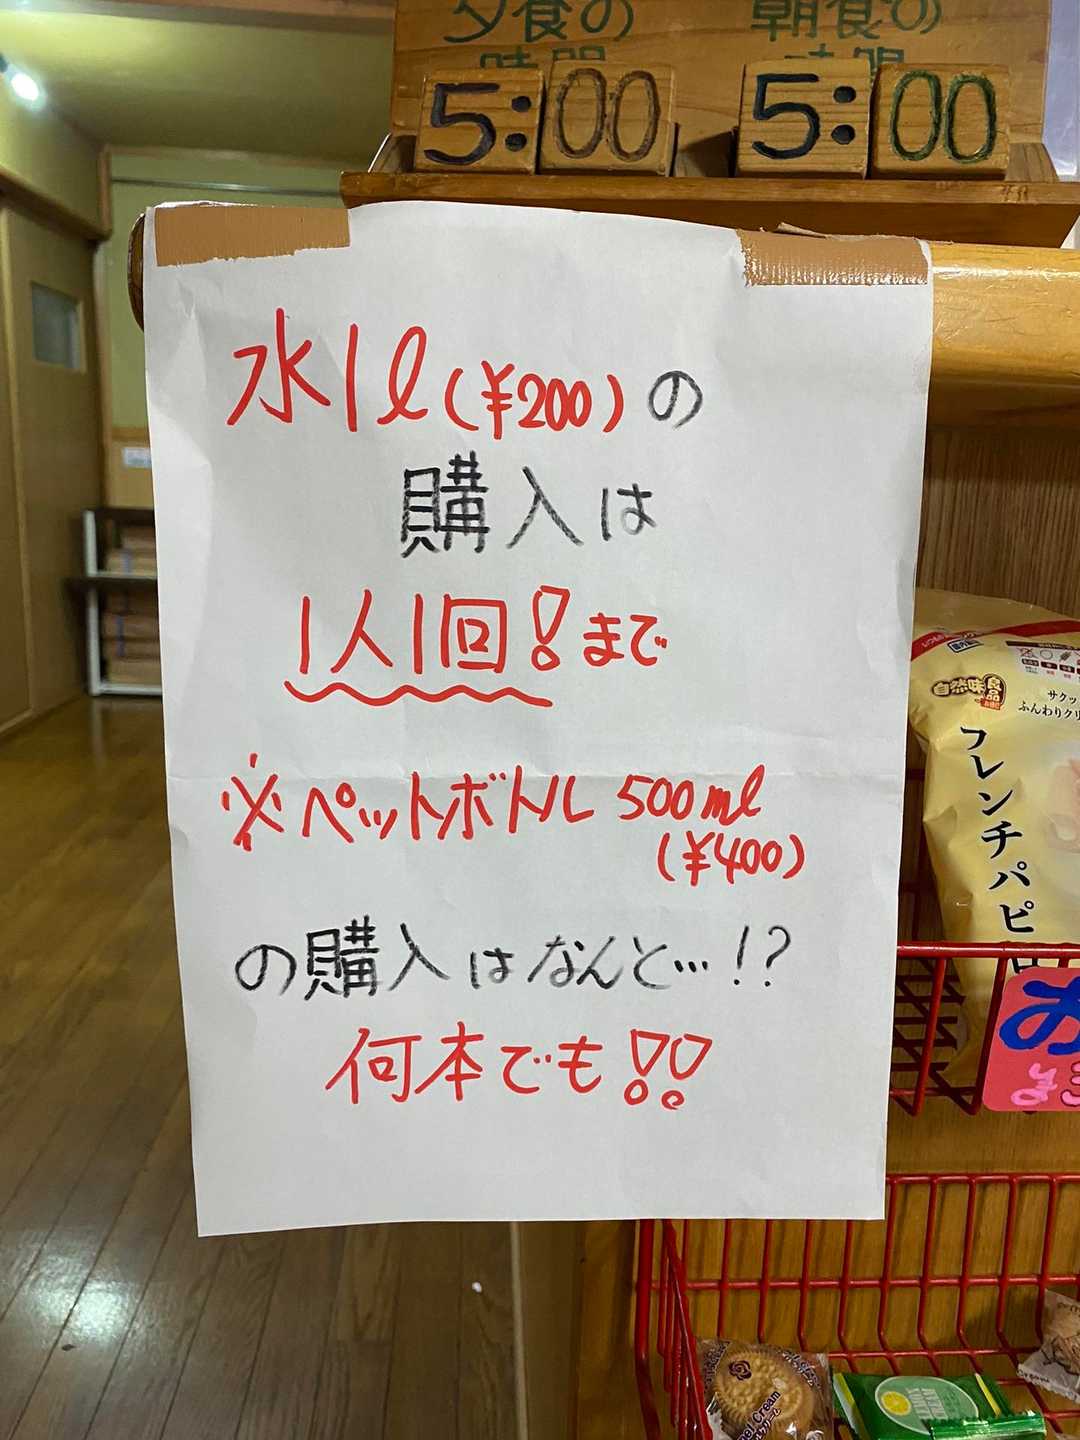 夕食の
時間
5:00
朝食の
時間
5:00
水1ℓ(¥200)の
購入は
1人1回!まで
※ペットボトル 500ml
(¥400)
の購入はなんと…!?
何本でも!!
自然味良品
サクッ
ふんわりクリ
フレンチパピ
お